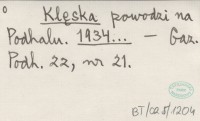 Klęska powodzi na
Podhalu. 1934... — Gaz.
Podh. 22, nr 21.
BT/CZŚ/1204